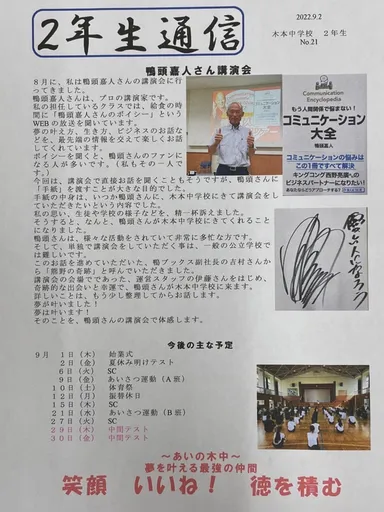 2年生通信
2022.9.2
木本中学校 2年生
No.21
鴨頭嘉人さん講演会
8月に、私は鴨頭嘉人さんの講演会に行
ってきました。
鴨頭嘉人さんは、プロの講演家です。
私の担任しているクラスでは、給食の時
間に「鴨頭嘉人さんのボイシー」という
WEBの放送を聞いています。
夢の叶え方、生き方、ビジネスのお話な
どを、最先端の情報を交えて楽しくお話
してくれています。
ボイシーを聞くと、鴨頭さんのファンに
なる人が多いです。(私もその一人で
す。)
今回は、講演会で直接お話を聞くこともそうですが、鴨頭さんに
「手紙」を渡すことが大きな目的でした。
手紙の中身は、いつか鴨頭さんに、木本中学校にきて講演会をし
ていただきたいという内容でした。
私の思い、生徒や学校の様子などを、精一杯訴えました。
そうすると、なんと、鴨頭さんが木本中学校にきてくれること
になりました。
鴨頭さんは、様々な活動をされていて非常に多忙な方です。
そして、単独で講演会をしていただく事は、一般の公立学校で
は難しいです。
このお話を進めていただいた、鴨ブックス副社長の吉村さんか
ら「熊野の奇跡」と呼んでいただきました。
講演会の会場であった、運営スタッフの伊藤さんをはじめ、
奇跡的な出会いと幸運で、鴨頭さんが木本中学校に来ます。
詳しいことは、もう少し整理してからお話します。
夢が叶いました!
夢は叶います!
そのことを、鴨頭さんの講演会で体感します。
Communication
Encyclopedia
もう人間関係で悩まない!
コミュニケーション
大全
鴨頭嘉人
コミュニケーションの悩みは
この1冊ですべて解決
キングコング西野亮廣への
ビジネスパートナーになりたい!
今後の主な予定
9月 1日(木) 始業式
2日(金) 夏休み明けテスト
6日(火) SC
9日(金) あいさつ運動(A班)
10日(土) 体育祭
12日(月) 振替休日
15日(木) SC
21日(水) あいさつ運動(B班)
27日(火) SC
29日(木) 中間テスト
30日(金) 中間テスト
~あいの木中~
夢を叶える最強の仲間
笑顔 いいね! 徳を積む